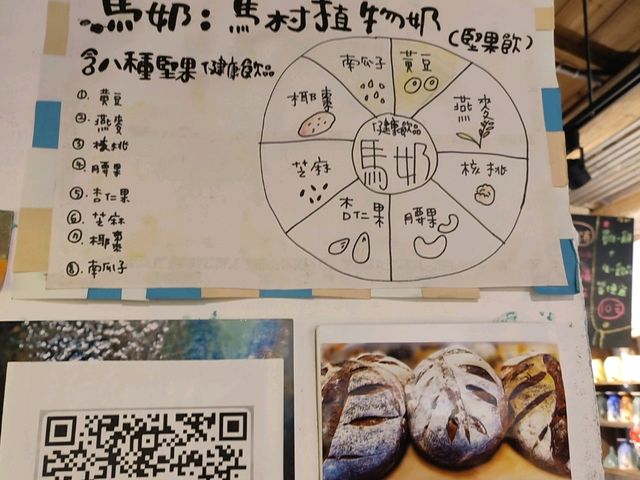 馬奶:馬村植物奶
(堅果飲)
含八種堅果健康飲品
①. 黃豆
②. 燕麥
③ 核桃
④. 腰果
⑤. 杏仁果
⑥. 芝麻
⑦. 椰棗
⑧. 南瓜子
南瓜子
黃豆
燕麥
核桃
腰果
杏仁果
芝麻
椰棗
健康飲品
馬奶